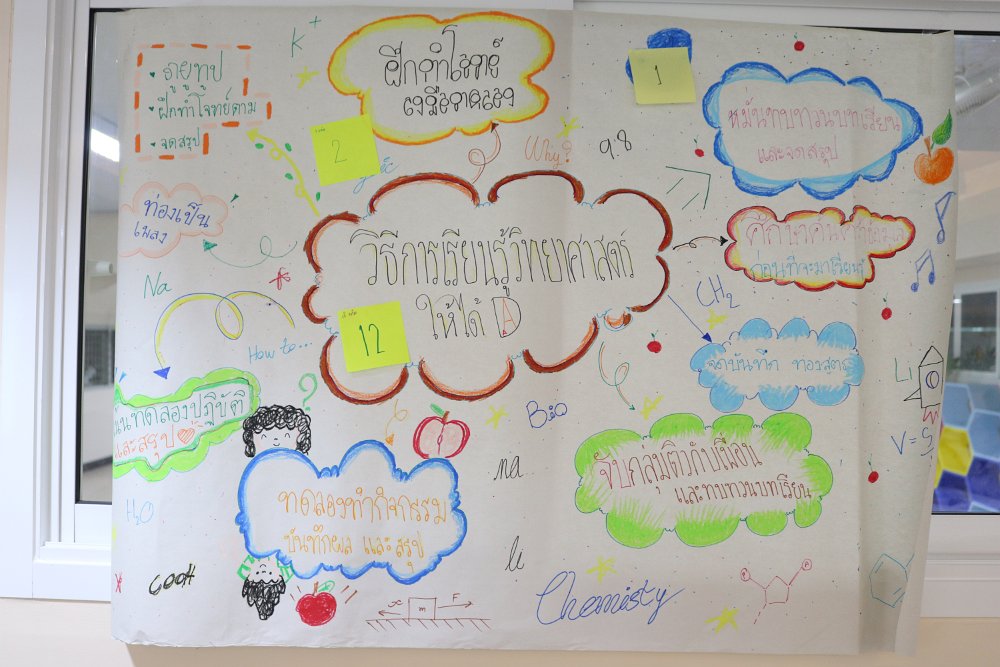 K+
ฝึกทำโจทย์
1
• ดูยูทูป
• ฝึกทำโจทย์ตาม
• จดสรุป
2
Why?
9.8
หมั่นทบทวนบทเรียน
และจดสรุป
ท่องเป็น
เพลง
วิธีการเรียนรู้วิทยาศาสตร์
ให้ได้ A
ก่อนที่จะมาเรียนรู้
Na
12
How to...
CH2
จดบันทึก ท่องสูตร
Li
?
Bio
V = S
หมั่นทดลองปฏิบัติ
และสรุป
6
na
จับกลุ่มติวกับเพื่อน
และทบทวนบทเรียน
ทดลองทำกิจกรรม
บันทึกผล และ สรุป
H2O
li
COOH
Chemisty
x m F